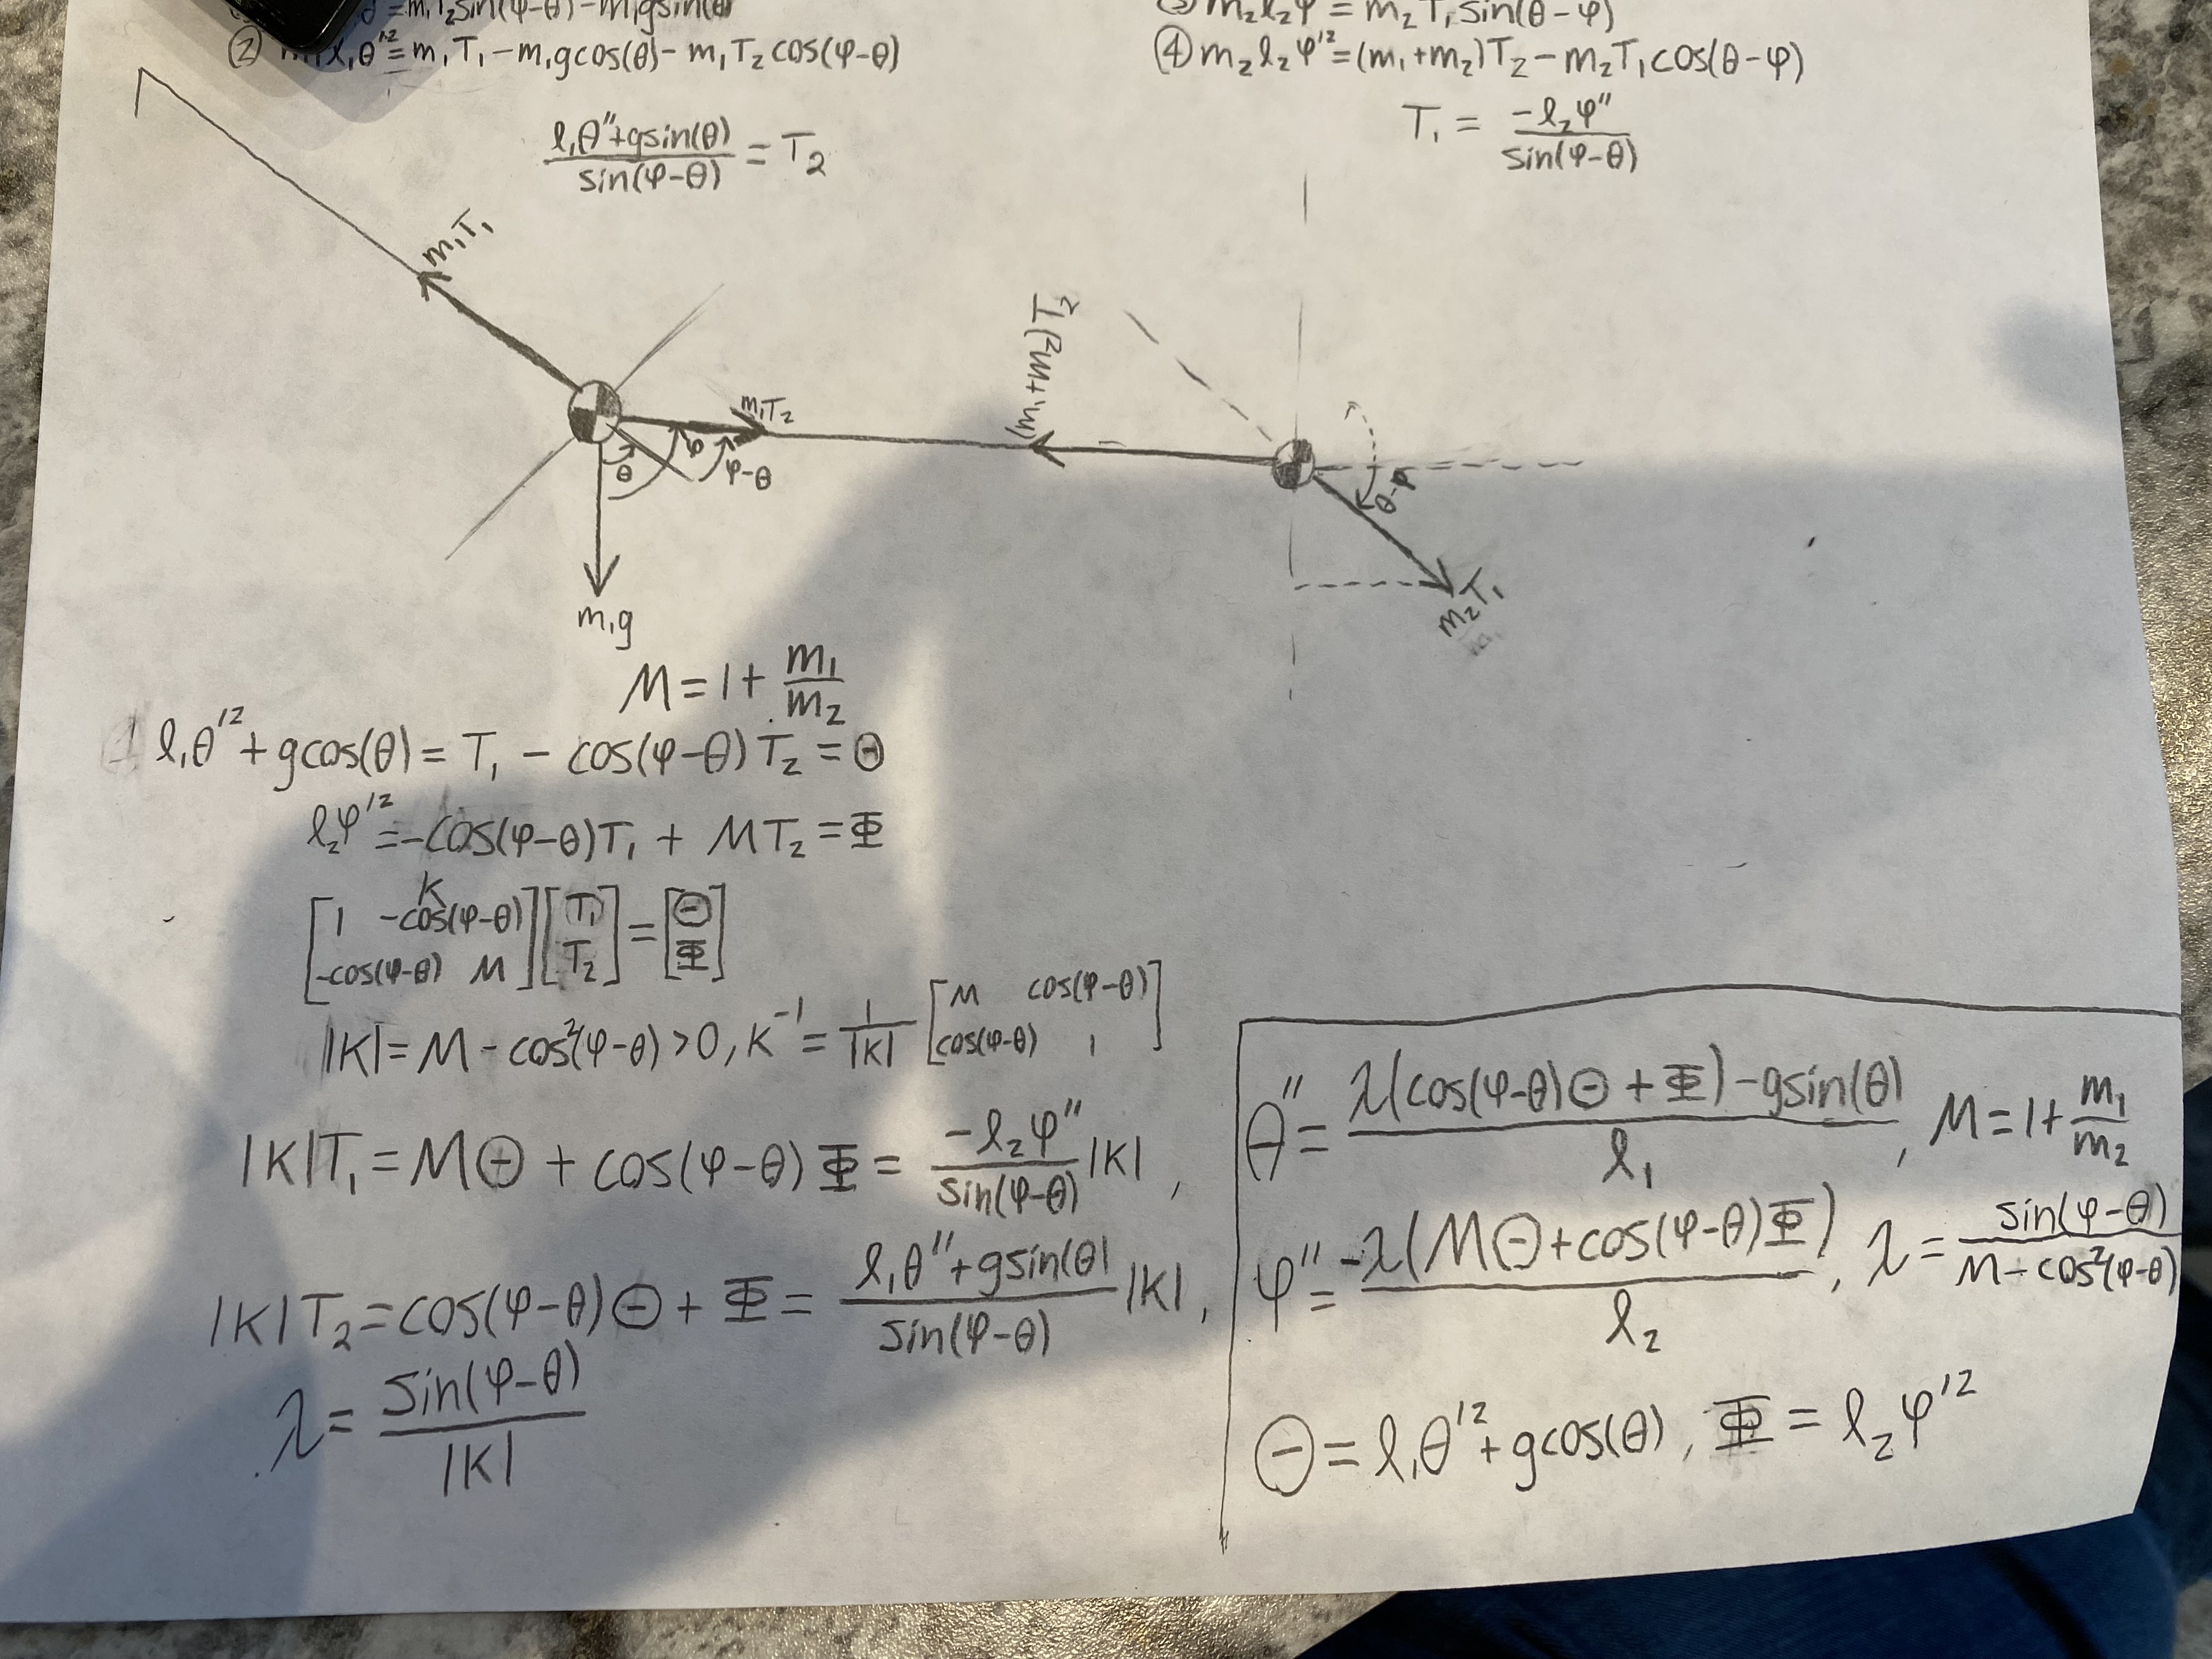 = m₁T₂sin(φ-θ) - m₁gsin(θ)
② l₁θ'² = m₁T₁ - m₁gcos(θ) - m₁T₂cos(φ-θ)
l₁θ''+gsin(θ) / sin(φ-θ) = T₂
③ m₂l₂φ'' = m₂T₁sin(θ-φ)
④ m₂l₂φ'² = (m₁+m₂)T₂ - m₂T₁cos(θ-φ)
T₁ = -l₂φ'' / sin(φ-θ)
m₁T₁
m₁T₂
θ
φ
φ-θ
m₁g
(m₁+m₂)T₂
θ-φ
m₂T₁
M = 1 + m₁/m₂
l₁θ'² + gcos(θ) = T₁ - cos(φ-θ)T₂ = Θ
l₂φ'² = -cos(φ-θ)T₁ + MT₂ = Φ
K
[1 -cos(φ-θ)] [T₁] = [Θ]
[-cos(φ-θ) M] [T₂] [Φ]
|K| = M - cos²(φ-θ) > 0, K⁻¹ = 1/|K| [M cos(φ-θ)]
[cos(φ-θ) 1]
|K|T₁ = MΘ + cos(φ-θ)Φ = -l₂φ''/sin(φ-θ) |K|,
|K|T₂ = cos(φ-θ)Θ + Φ = l₁θ''+gsin(θ)/sin(φ-θ) |K|,
λ = sin(φ-θ)/|K|
θ'' = λ(cos(φ-θ)Θ + Φ) - gsin(θ) / l₁, M = 1 + m₁/m₂
φ'' = -λ(MΘ + cos(φ-θ)Φ) / l₂, λ = sin(φ-θ) / M - cos²(φ-θ)
Θ = l₁θ'² + gcos(θ), Φ = l₂φ'²